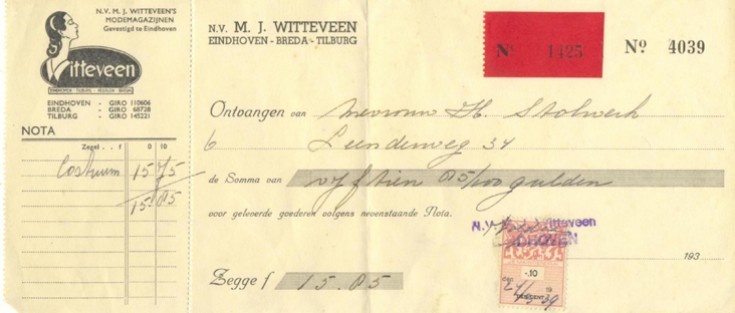 N.V. M. J. WITTEVEEN'S
MODEMAGAZIJNEN
Gevestigd te Eindhoven
Witteveen
EINDHOVEN TILBURG BREDA
EINDHOVEN - GIRO 110606
BREDA - GIRO 68728
TILBURG - GIRO 145221
NOTA
Zegel . . f 0 10
Costuum 15 75
15.85
N.V. M. J. WITTEVEEN
EINDHOVEN - BREDA - TILBURG
No. 1425
No 4039
Ontvangen van Mevrouw Th. Stolwerk
6 Leenderweg 34
de Somma van vijftien 85/100 gulden
voor geleverde goederen volgens nevenstaande Nota.
N.V. Witteveen
EINDHOVEN
193
-.10
Zegge f 15.85